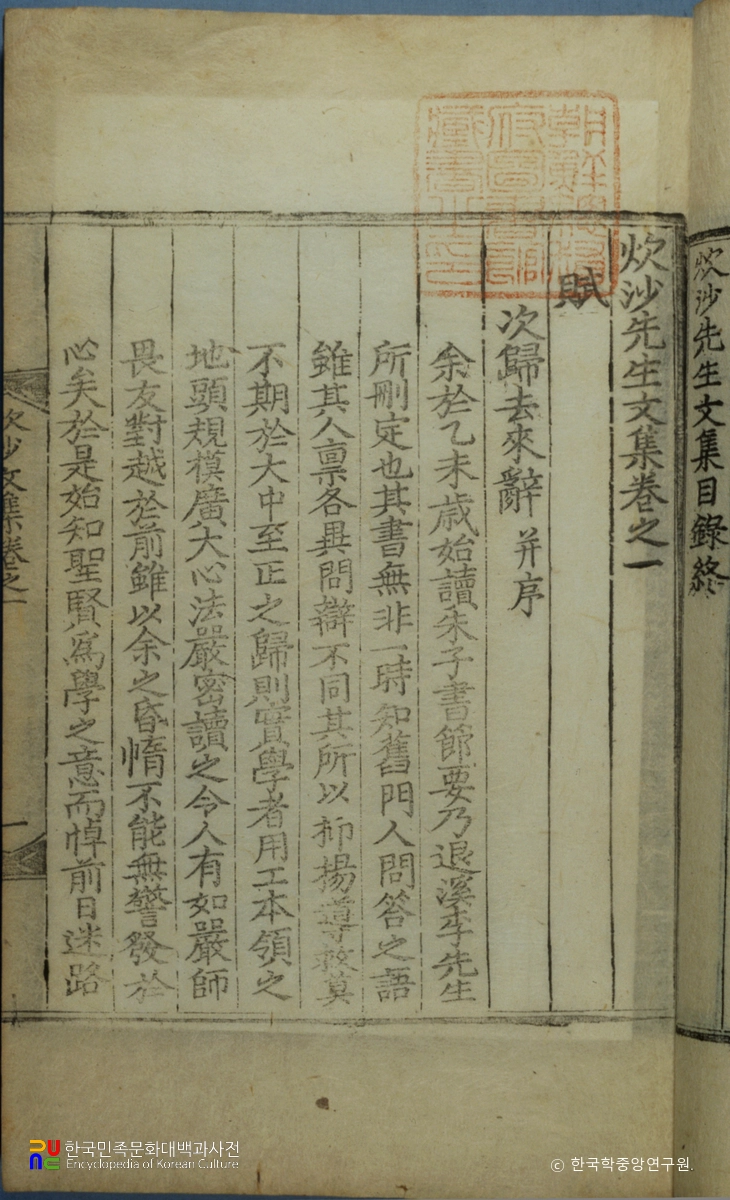 炊沙先生文集目錄終
炊沙先生文集卷之一
賦
次歸去來辭 幷序
余於乙未歲始讀朱子書節要乃退溪李先生
所刪定也其書無非一時知舊門人問答之語
雖其人禀各異問辯不同其所以抑揚導救莫
不期於大中至正之歸則實學者用工本領之
地頭規模廣大心法嚴密讀之令人有如嚴師
畏友對越於前雖以余之昏惰不能無警發於
心矣於是始知聖賢爲學之意而悼前日迷路
炊沙文集卷之一
一
朝鮮總督
府圖書館
藏書之印
한국민족문화대백과사전
Encyclopedia of Korean Culture
© 한국학중앙연구원.